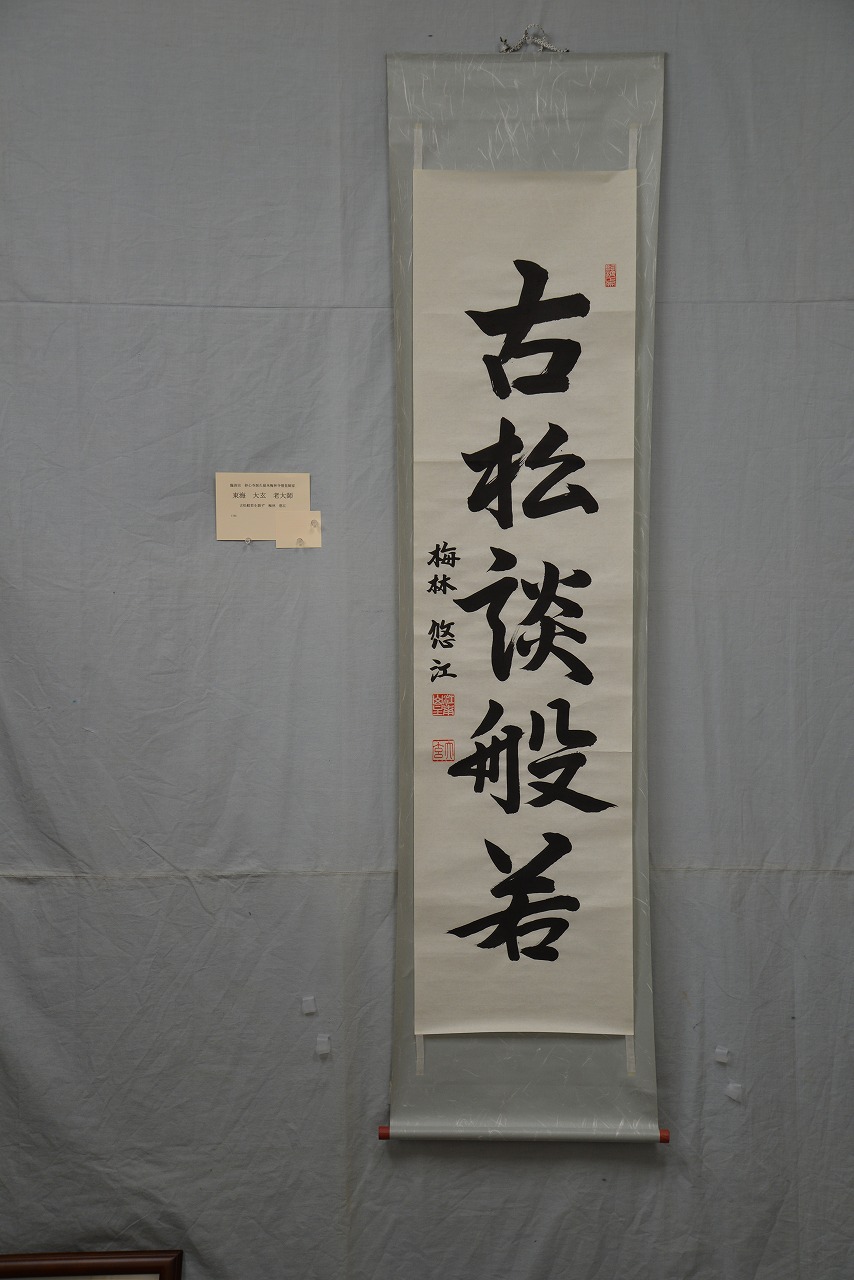 古松談般若
梅林 悠江
東海 大玄 老大師